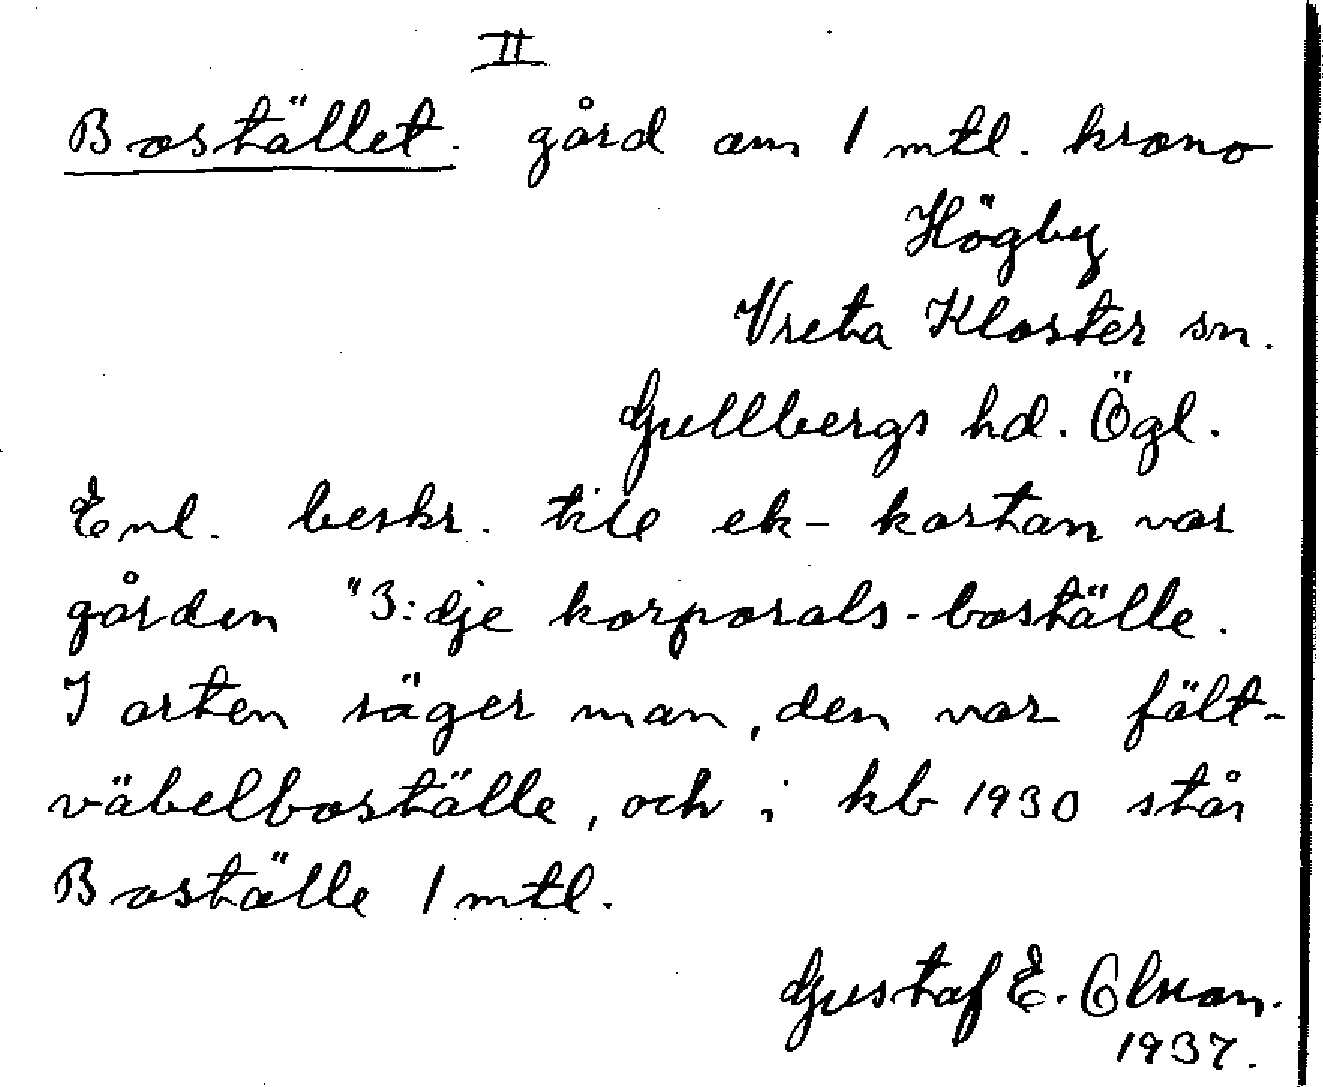 II
Bostället. gård om 1 mtl. krono
Högby
Vreta Kloster sn.
Gullbergs hd. Ögl.
Enl. beskr. till ek-kartan var
gården "3:dje korporals-boställe.
I orten säger man, den var fält-
väbelboställe, och i kb 1930 står
Boställe 1 mtl.
Gustaf E. Olson.
1937.